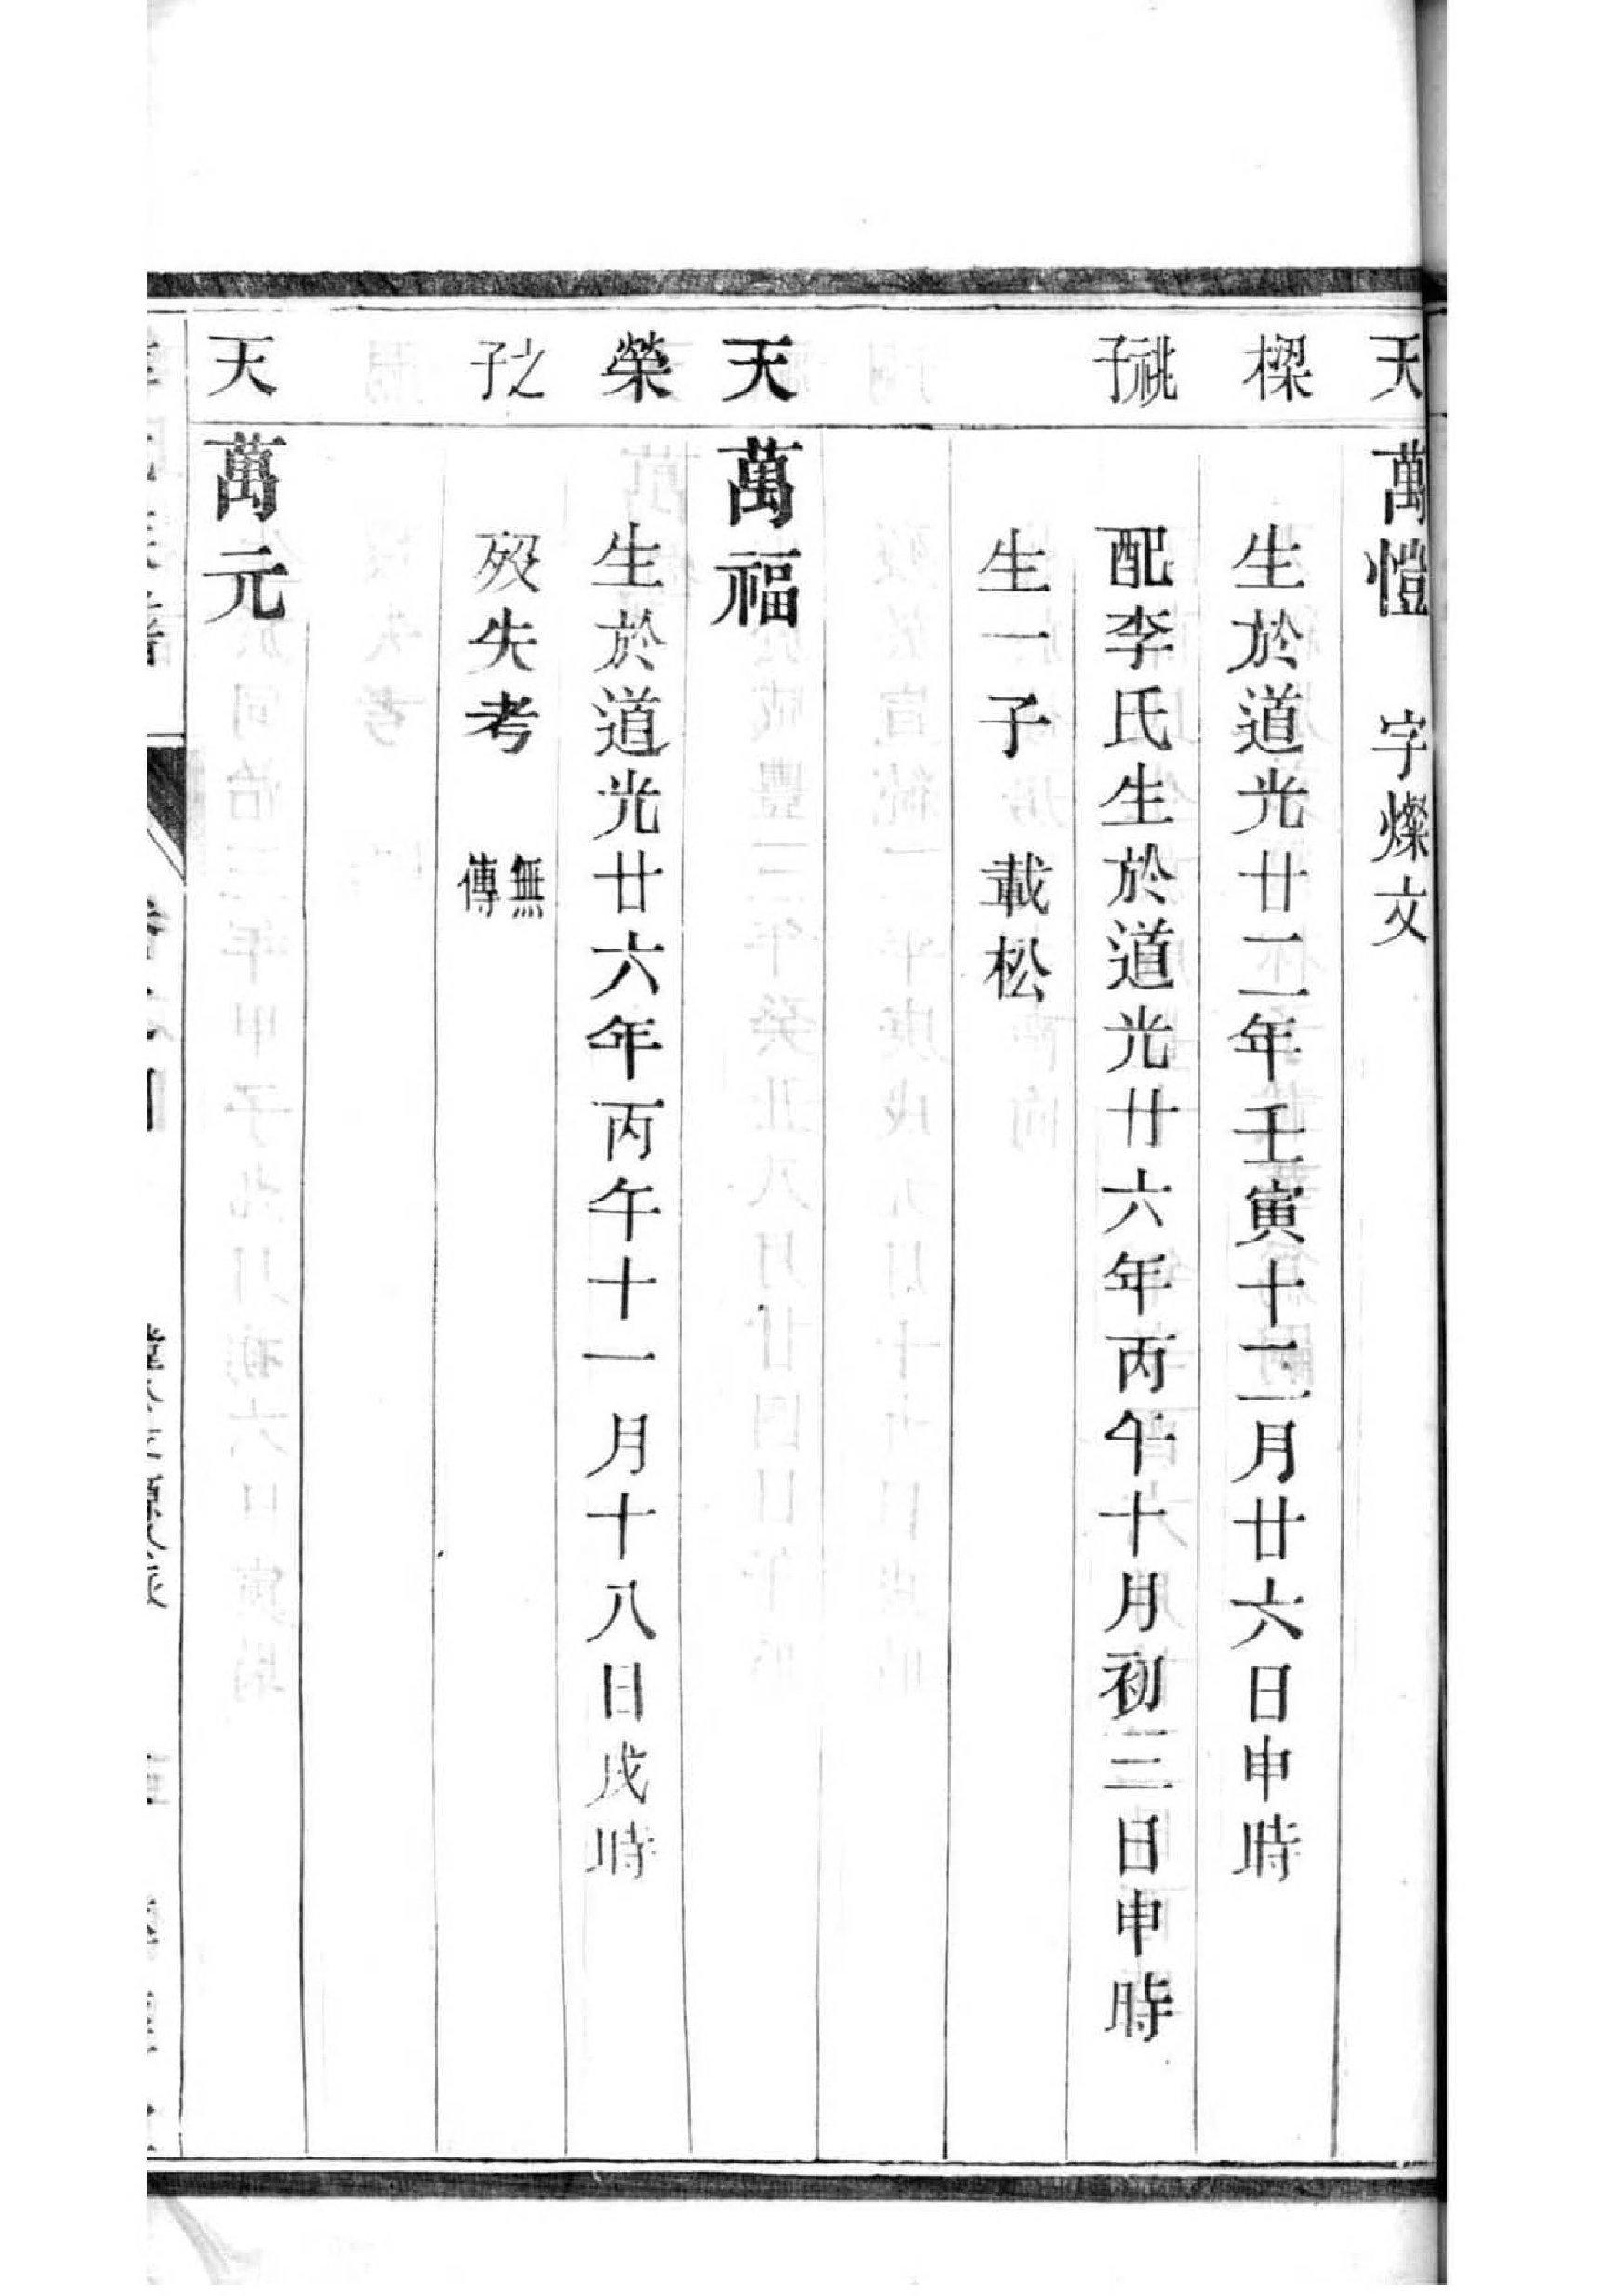 天
萬愷 字燦文
樑
生於道光廿二年壬寅十二月廿六日申時
祧子
配李氏生於道光廿六年丙午十月初三日申時
生一子 載松
天
萬福
榮
生於道光廿六年丙午十一月十八日戌時
之子
歿失考 無傳
天
萬元